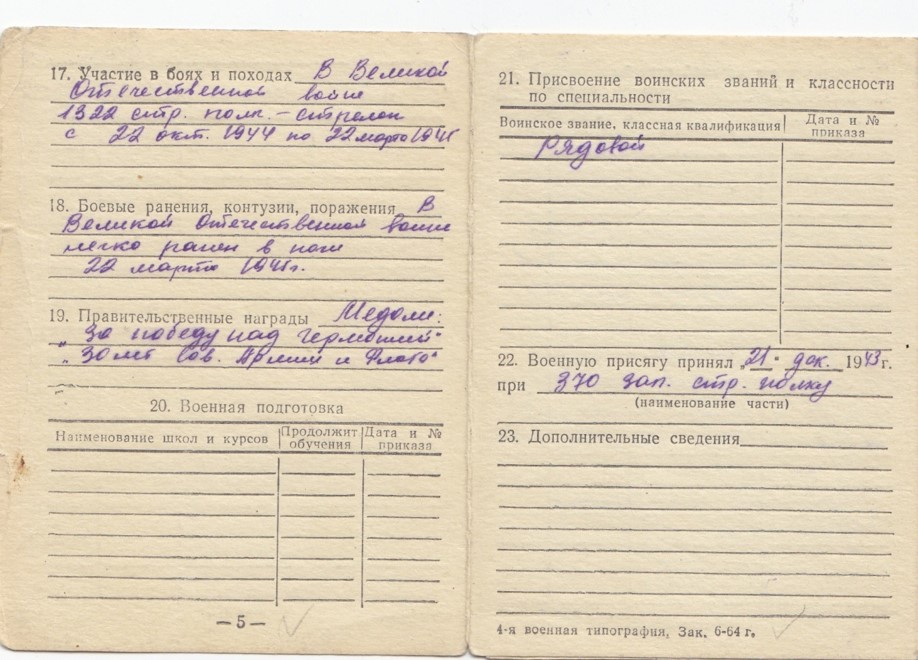 17. Участие в боях и походах В Великой
Отечественной войне
1322 стр. полк. – стрелок
с 22 окт. 1944 по 22 марта 1945
18. Боевые ранения, контузии, поражения В
Великой Отечественной войне
легко ранен в ноги
22 марта 1945г.
19. Правительственные награды Медали:
„За победу над Германией"
„30 лет Сов. Армии и Флота"
20. Военная подготовка
Наименование школ и курсов Продолжит обучения Дата и № приказа
— 5 —
21. Присвоение воинских званий и классности
по специальности
Воинское звание, классная квалификация Дата и № приказа
Рядовой
22. Военную присягу принял „21" дек. 1943 г.
при 370 зап. стр. полку
(наименование части)
23. Дополнительные сведения
4-я военная типография, Зак. 6-64 г.